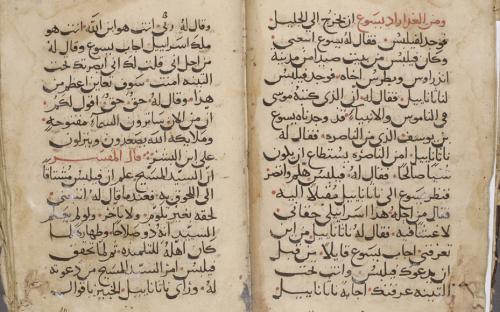 ومن الغد اراد يسوع ان يخرج الى الجليل
فوجد لفيلبس فقال له يسوع اتبعني
وكان فيلبس من بيت صيدا من مدينه
اندراوس وبطرس اخاه فوجد فيلبس
لناتانابيل فقال له ان الذي كتبه موسى
في الناموس والانبياء قد وجدناه يسوع
بن يوسف الذي من الناصره فقال له
ناتانابيل امن الناصره يستطاع ان يكون
شيا صالحا فقال له فيلبس هلم وانظر
فنظر يسوع الى ناتانابيل مقبلا اليه
فقال من اجله هذا اسراييلي حقاني
لا غش فيه فقال له ناتانابيل من اين
تعرفني اجاب يسوع قايلا من قبل
ان يدعوك فيلبس وانت تحت
التينه عرفتك اجابه ناتانابيل
وقال له ربي انت هو ابن الله انت هو
ملك اسراييل اجاب يسوع وقال له
من اجل اني قلت لك اني ابصرتك تحت
التينه امنت سوف تعاين اعظم من
هذا وقال له حق حق اقول لكم
ان من الان سترون السماء مفتوحه
وملايكه الله يصعدون وينزلون
على ابن البشر قال المفسر
ان السيد المسيح علم ان فيلبس مشتاقا
الى اللحوق به فعندما قال له اتبعني
لحقه بغير تلوم ولا تاخر ولولم يعلم
السيد انه ذو صلاح وطهاره لما
كان اهله للتلمذه ثم لما تحقق
فيلبس امر السيد المسيح من دعوته
له وراى ناتانابيل الخبير باقوال